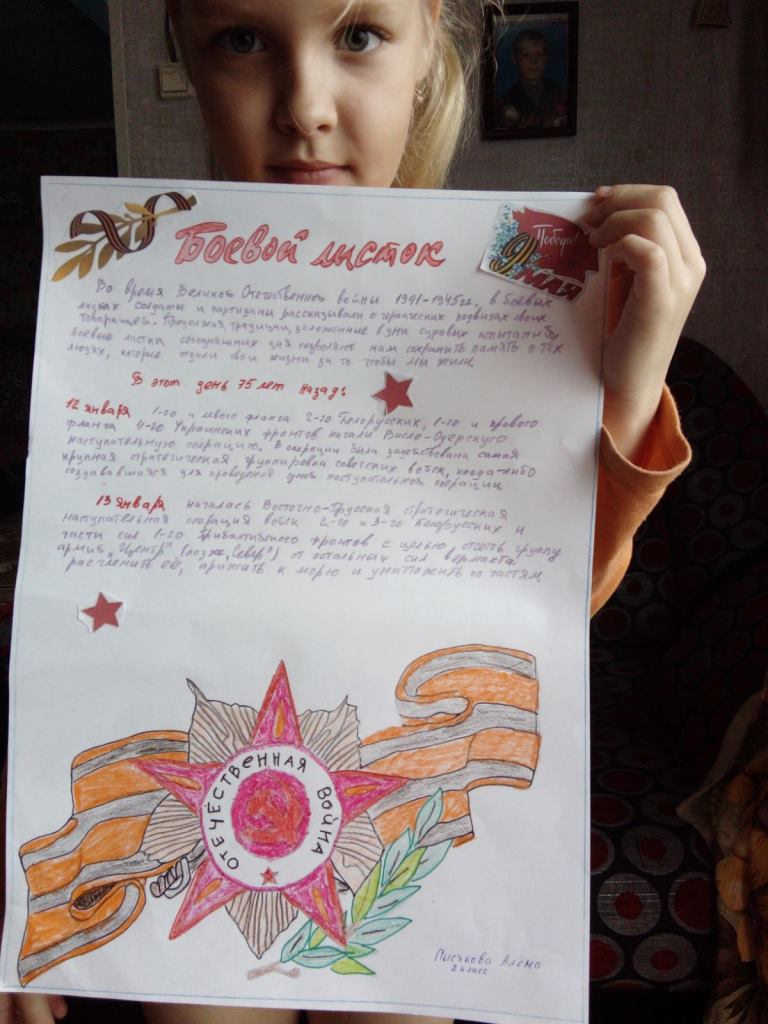 Боевой листок
Победа!
9 МАЯ
Во время Великой Отечественной войны 1941-1945гг. в боевых
листках солдаты и партизаны рассказывали о героических подвигах своих
товарищей. Продолжая традиции, заложенные в дни суровых испытаний
боевые листки сегодняшних дня позволяют нам сохранить память о тех
людях, которые отдали свои жизни за то чтобы мы жили.
В этот день 75 лет назад:
12 января 1-го и левого фланга 2-го Белорусских, 1-го и правого
фланга 4-го Украинских фронтов начали Висло-Одерскую
наступательную операцию. В операции была задействована самая
крупная стратегическая группировка советских войск, когда-либо
создававшаяся для проведения одной наступательной операции.
13 января началась Восточно-Прусская стратегическая
наступательная операция войск 2-го и 3-го Белорусских и
части сил 1-го Прибалтийского фронтов с целью отсечь группу
армий "Центр" (позже "Север") от остальных сил вермахта.
расчленить её, прижать к морю и уничтожить по частям
ОТЕЧЕСТВЕННАЯ ВОЙНА
Алёна
2 класс